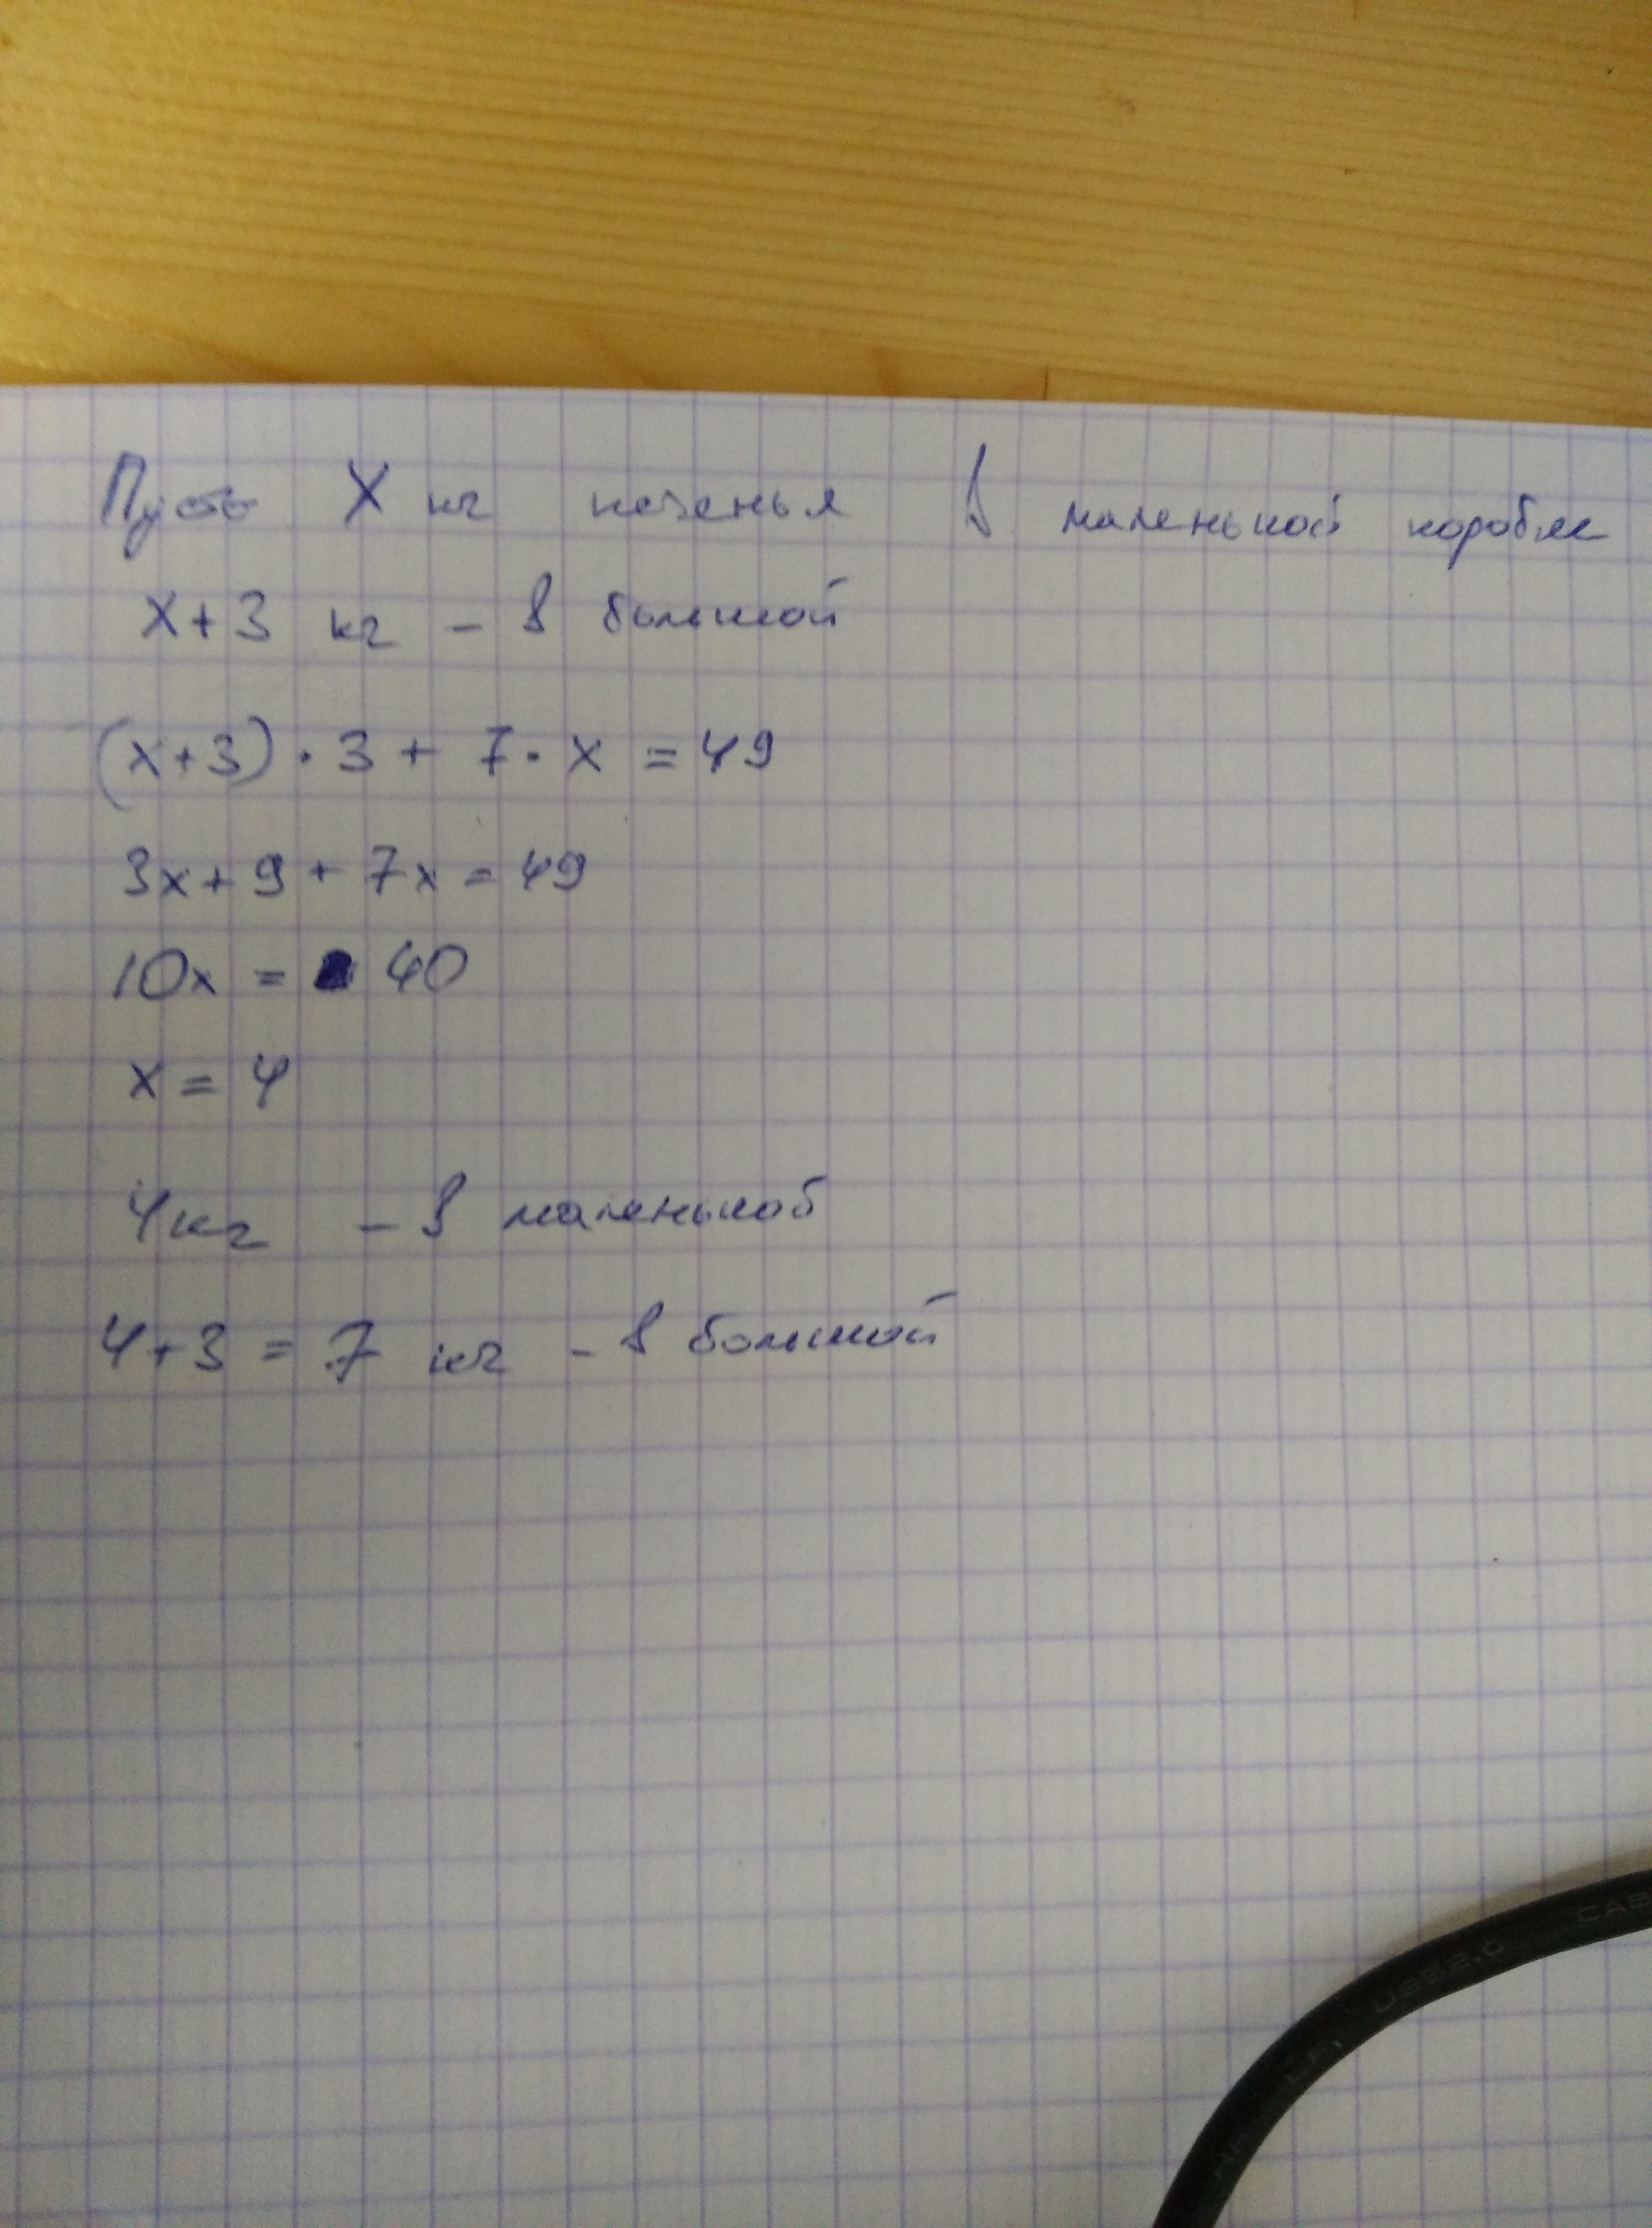 Пусть X кг печенья в маленькой коробке
x+3 кг - в большой
(x+3) · 3 + 7 · x = 49
3x + 9 + 7x = 49
10x = 40
x = 4
4 кг - в маленькой
4+3 = 7 кг - в большой
USB2.0 CAB